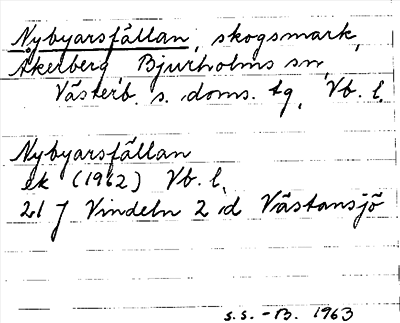 Nybyarsfällan, skogsmark,
Åkerberg Bjurholms sn,
Västerb. s. doms. tg, Vb. l.
Nybyarsfällan
ek (1962) Vb. l.
21 J Vindeln 2 d Västansjö
s.s. - B. 1963